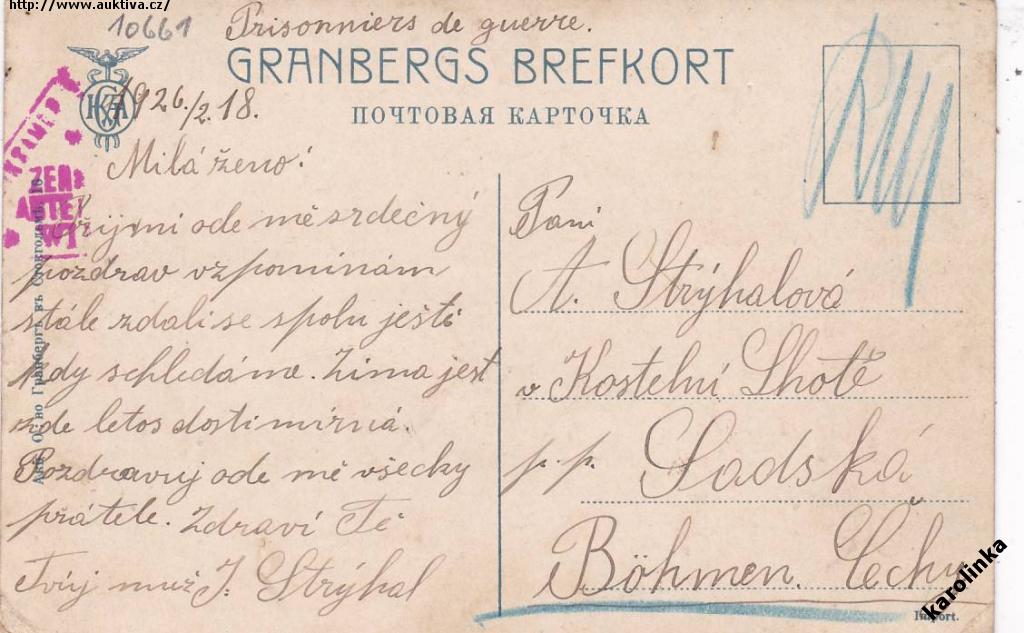 http://www.auktiva.cz/
10661
Prisonniers de guerre.
GRANBERGS BREFKORT
ПОЧТОВАЯ КАРТОЧКА
1926./2.18.
Milá ženo!
Přijmi ode mě srdečný
pozdrav vzpomínám
stále zdali se spolu ještě
kdy schledáme. Zima jest
zde letos dosti mírná.
Pozdravuj ode mě všecky
přátele. Zdraví Tě
Tvůj muž J. Strýhal
Paní
A. Strýhalová
v Kostelní Lhotě
p. p. Sadská
Böhmen. Čechy
Акц. О-во Гранбергъ въ Стокгольмѣ
Import.
karolinka